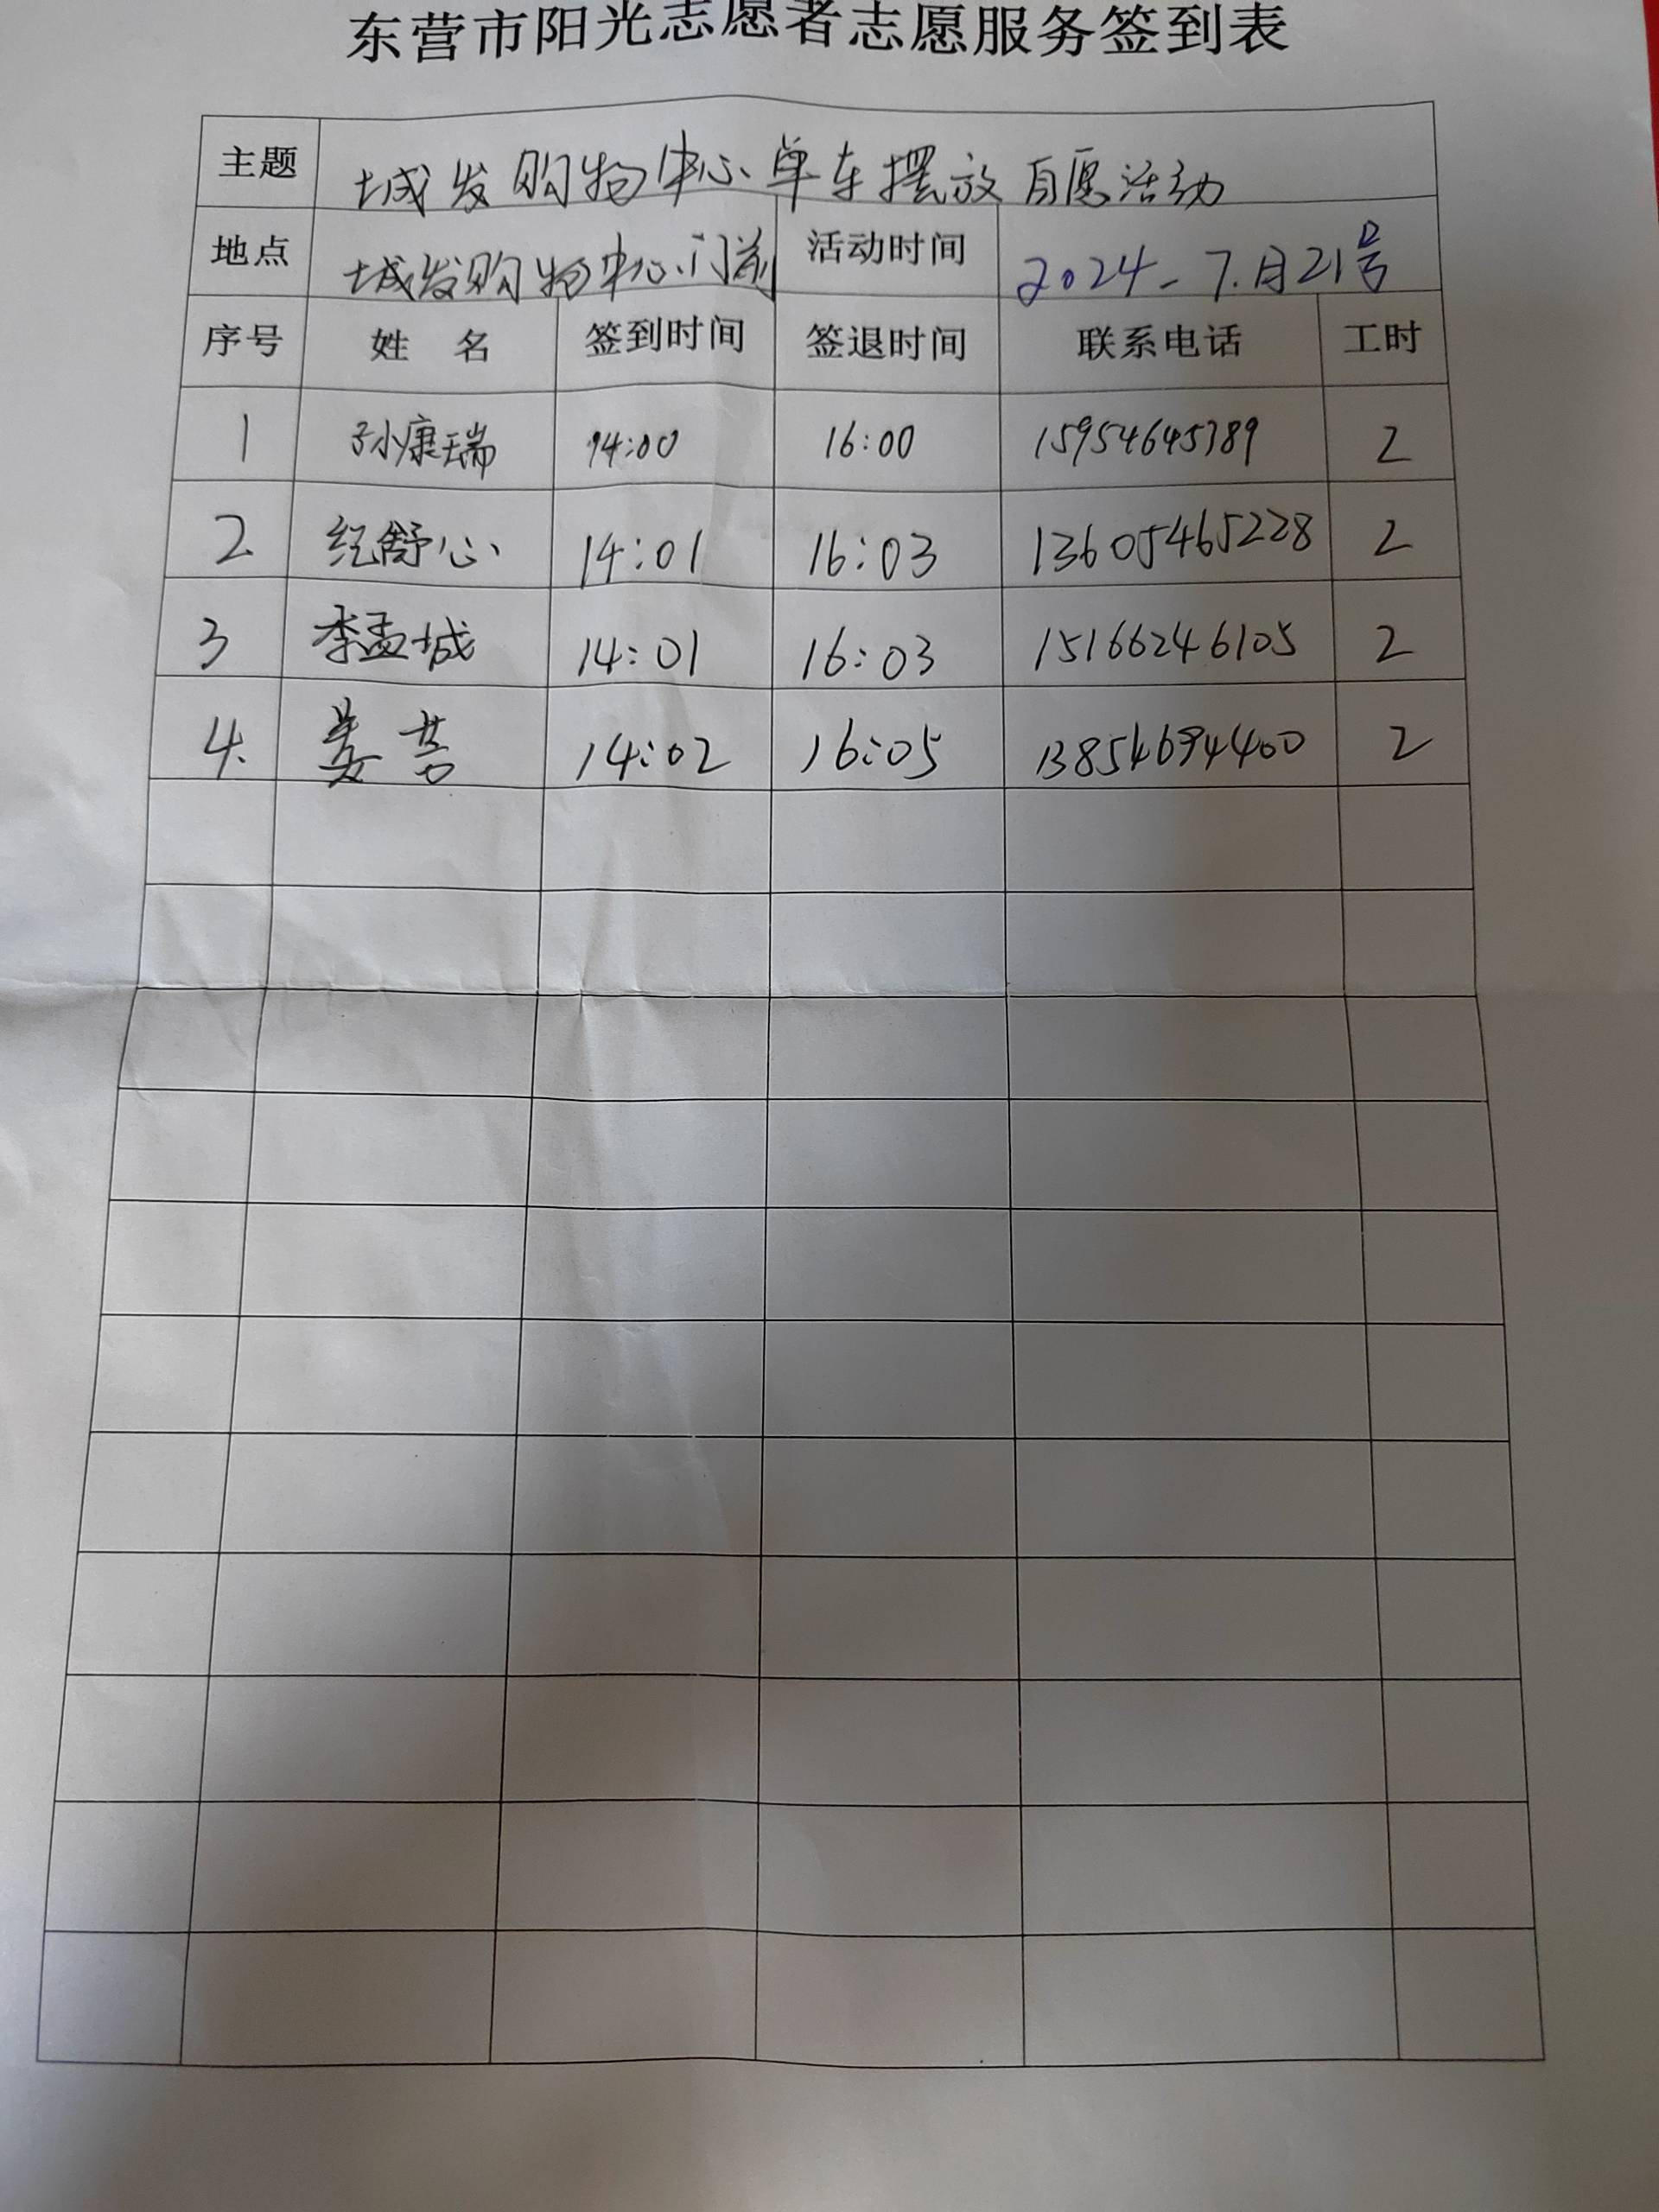 东营市阳光志愿者志愿服务签到表
主题 城发购物中心单车摆放自愿活动
地点 城发购物中心门前 活动时间 2024-7.月21号
序号 姓 名 签到时间 签退时间 联系电话 工时
1 孙康瑞 14:00 16:00 15954645389 2
2 纪舒心 14:01 16:03 13605465228 2
3 李孟城 14:01 16:03 15166246105 2
4. 姜 14:02 16:05 13854694400 2